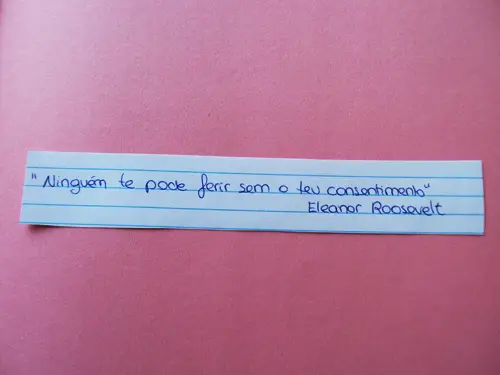 "Ninguém te pode ferir sem o teu consentimento"
Eleanor Roosevelt